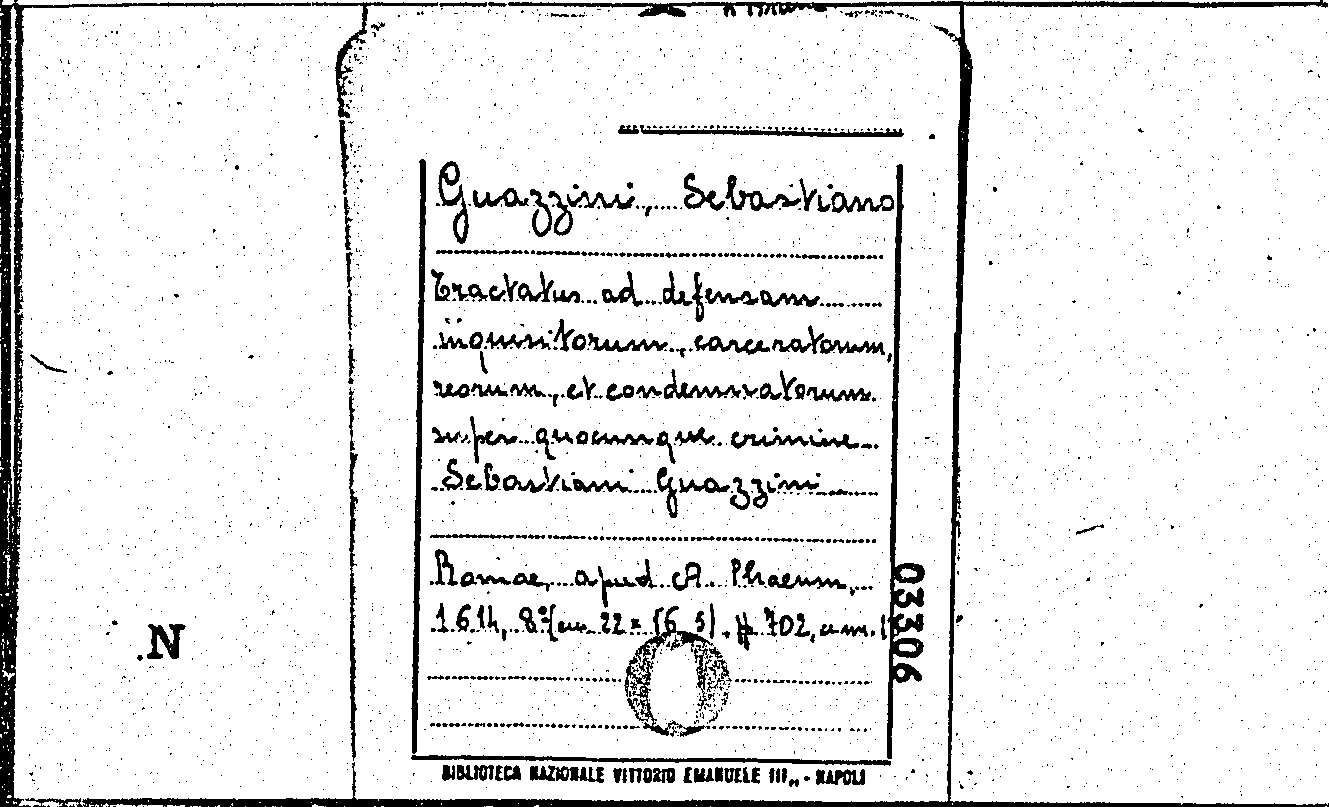 Guazzini, Sebastiano
Tractatus ad defensam
inquisitorum, carceratorum,
reorum, et condemnatorum
super quocunque crimine
Sebastiani Guazzini
Romae, apud A. Phaeum,
1614, 8° (cm 22 x 16 5). 702, cm.
03306
N
BIBLIOTECA NAZIONALE VITTORIO EMANUELE III,, - NAPOLI